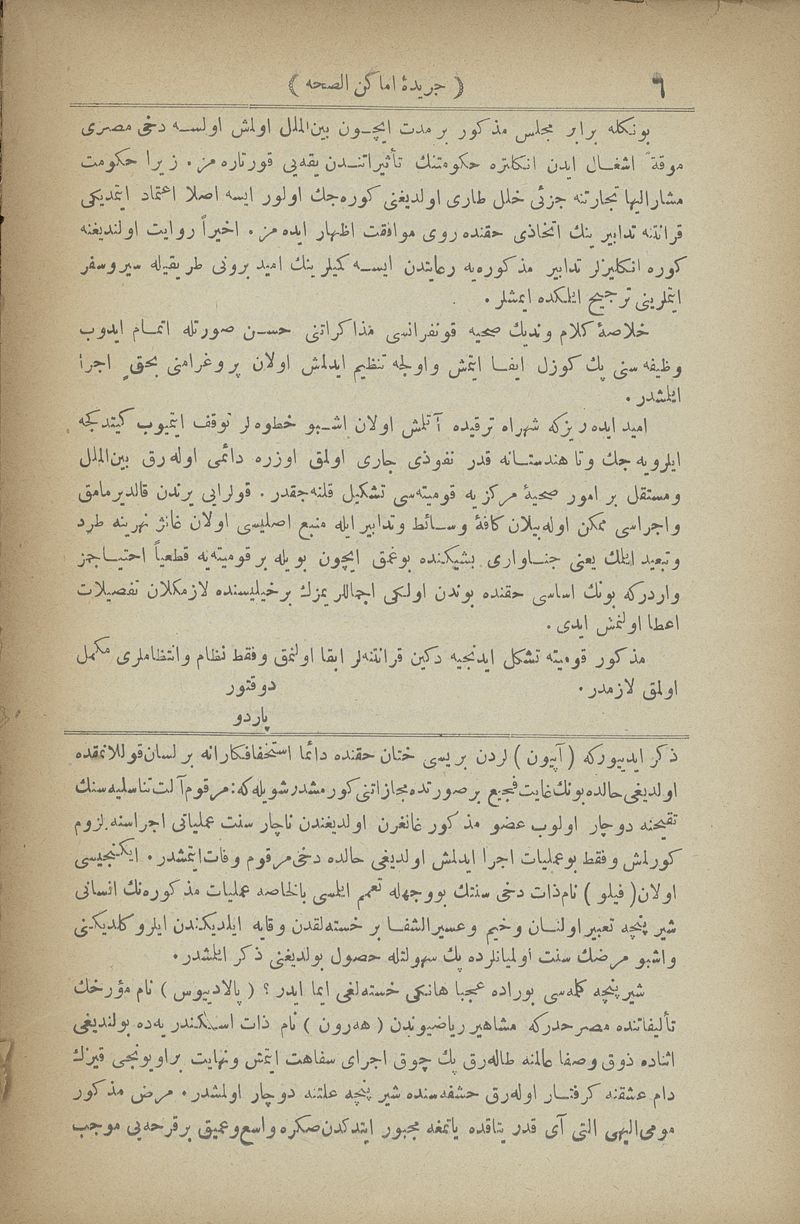 ٦
( جريدهٔ اماكن الصحه )
بونكله برابر مجلس مذكور بر مدت ايچـون بين‌الملل اولمش اولسـه دخى مصرى
موقةً اشغـال ايدن انكلتره حكومتنك تأثيراتنـدن يقه‌يى قورتاره مز. زيرا حكومت
مشاراليها تجارتنه جزئى خلل طارى اولديغنى كوره‌جك اولور ايسه اصلا اعتماد ايتمديكى
قرانتنه تدابير ينك اتخاذى حقنده روى موافقت اظهار ايده مز. اخيراً روايت اولنديغنه
كوره انكليزلر تدابير مذكوره‌يه رعايتدن ايسـه كميلر ينك اميد برونى طريقيله سيروسفر
ايتملرينى ترجيح ايتمكده ايمشلر.
خلاصهٔ كلام ونديك صحيه قونفرانسى مذاكراتنى حسـن صورتله اتمـام ايدوب
وظيفه سنى پك كوزل ايفـا ايتمش واولجه تنظيم ايدلمش اولان پروغرامنى بحقٍ اجرا
ايلمشدر.
اميد ايده ريزكه شهراه ترقيده آتلمش اولان اشـبو خطوه لر توقف ايتميوب كيتدكجه
ايلرويه‌جك وتا هندستـانه قدر نفوذى جارى اولمق اوزره دائمى اوله‌رق بين‌الملل
ومستقل بر امور صحيهٔ مركزيه قوميته‌سى تشكيل قلنه‌جقدر. قولرايى يرندن قالديرمامق
واجراسى ممكن اوله‌بيلان كافهٔ وسـائط وتدابيرايله منبع اصليسى اولان غانژ نهرينه طرد
وتبعيد ايتمك يعنى جنـاوارى بشيكنده بوغمق ايچون بويله بر قوميته‌يه قطعياً احتيـاجمز
واردركه بونك اساسى حقنده بوندن اولكى اجماللر يمزك برخيليسنده لازمكلان تفصيلات
اعطا اولنمش ايدى.
مذكور قوميته تشكل ايدنجيه دكين قرانتنه‌لر ابقا اولنمق وفقط نظام وانتظاملرى مكمل
اولمق لازمدر.
دوقتور
پاردو
ذكر ايدييوركه ( آپيون ) لردن بريسى ختان حقنده دائما استخفافكارانه بر لسان قوللانمقده
اولديغى حالده بونك غايت فجيع بر صورتده مجازاتنى كورمشدر شويله‌كه: مرقوم آلت تناسليه سنك
تقيحنه دوچار اولوب عضو مذكور غانغرن اولديغندن ناچار سنت عملياتى اجراسنه لزوم
كورلمش وفقط بوعمليات اجرا ايدلمش اولديغى حالده دخى مرقوم وفات ايتمشدر. ايكنجيسى
اولان ( فيلو ) نام ذات دخى سنتك بووجهله تعمم ايتمسى بالخاصه عمليات مذكوره‌نك انسانى
شيرپنچه تعبير اولنـان وخيم وعسيرالشفـا بر خسته‌لقدن وقايه ايلديكندن ايلرو كلديكنى
واشبو مرضك سنت اولميانلرده پك سهولتله حصول بولديغنى ذكر ايتمشدر.
شيرپنچه كلمه‌سى بوراده عجبا هانكى خسته‌لغى ايما ايدر؟ ( پالاديوس ) نام مؤرخك
تأليفاتنده مصرحدركه مشاهير رياضيوندن ( هه‌رون ) نام ذات اسـكندريه‌ده بولنديغى
اثناده ذوق وصفا عالمنه طاله‌رق پك چوق اجراى سفاهت ايتمش ونهايت براويونجى قيزك
دام عشقنه كرفتـار اوله‌رق حشفه‌سنده شيرپنچه علتنه دوچار اولمشدر. مرض مذكور
مومى‌اليهى التى آى قدر يتاقده ياتمغه مجبور ايتدكدن صكره واسع وعميق بر قرحه‌يى موجب